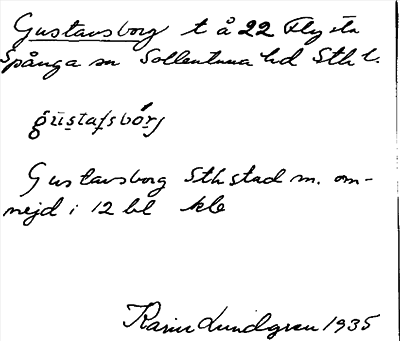 Gustavsborg t å 22 Flysta
Spånga sn Sollentuna hd Sthl.
gustafsborj
Gustavsborg Sth stad m. om-
nejd i 12 bl kb
Karin Lundgren 1935